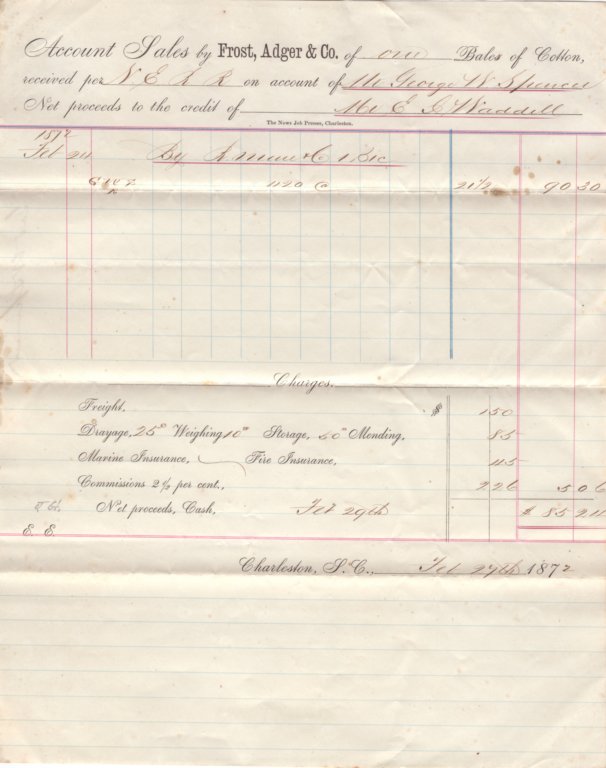 Account Sales by Frost, Adger & Co. of one Bales of Cotton,
received per N E R R on account of Mr George W Spencer
Net proceeds to the credit of Mr E G Waddell
The News Job Presses, Charleston.
1872
Feb 24 By
420 21 1/2 90 30
Charges.
Freight, $ 1 50
Drayage, 25c Weighing 10c Storage, 50c Mending, 85
Marine Insurance, Fire Insurance, 45
Commissions 2 1/2 per cent., 2 26 5 06
Net proceeds, Cash, Feb 29th $ 85 24
E. E.
Charleston, S. C., Feb 27th 1872